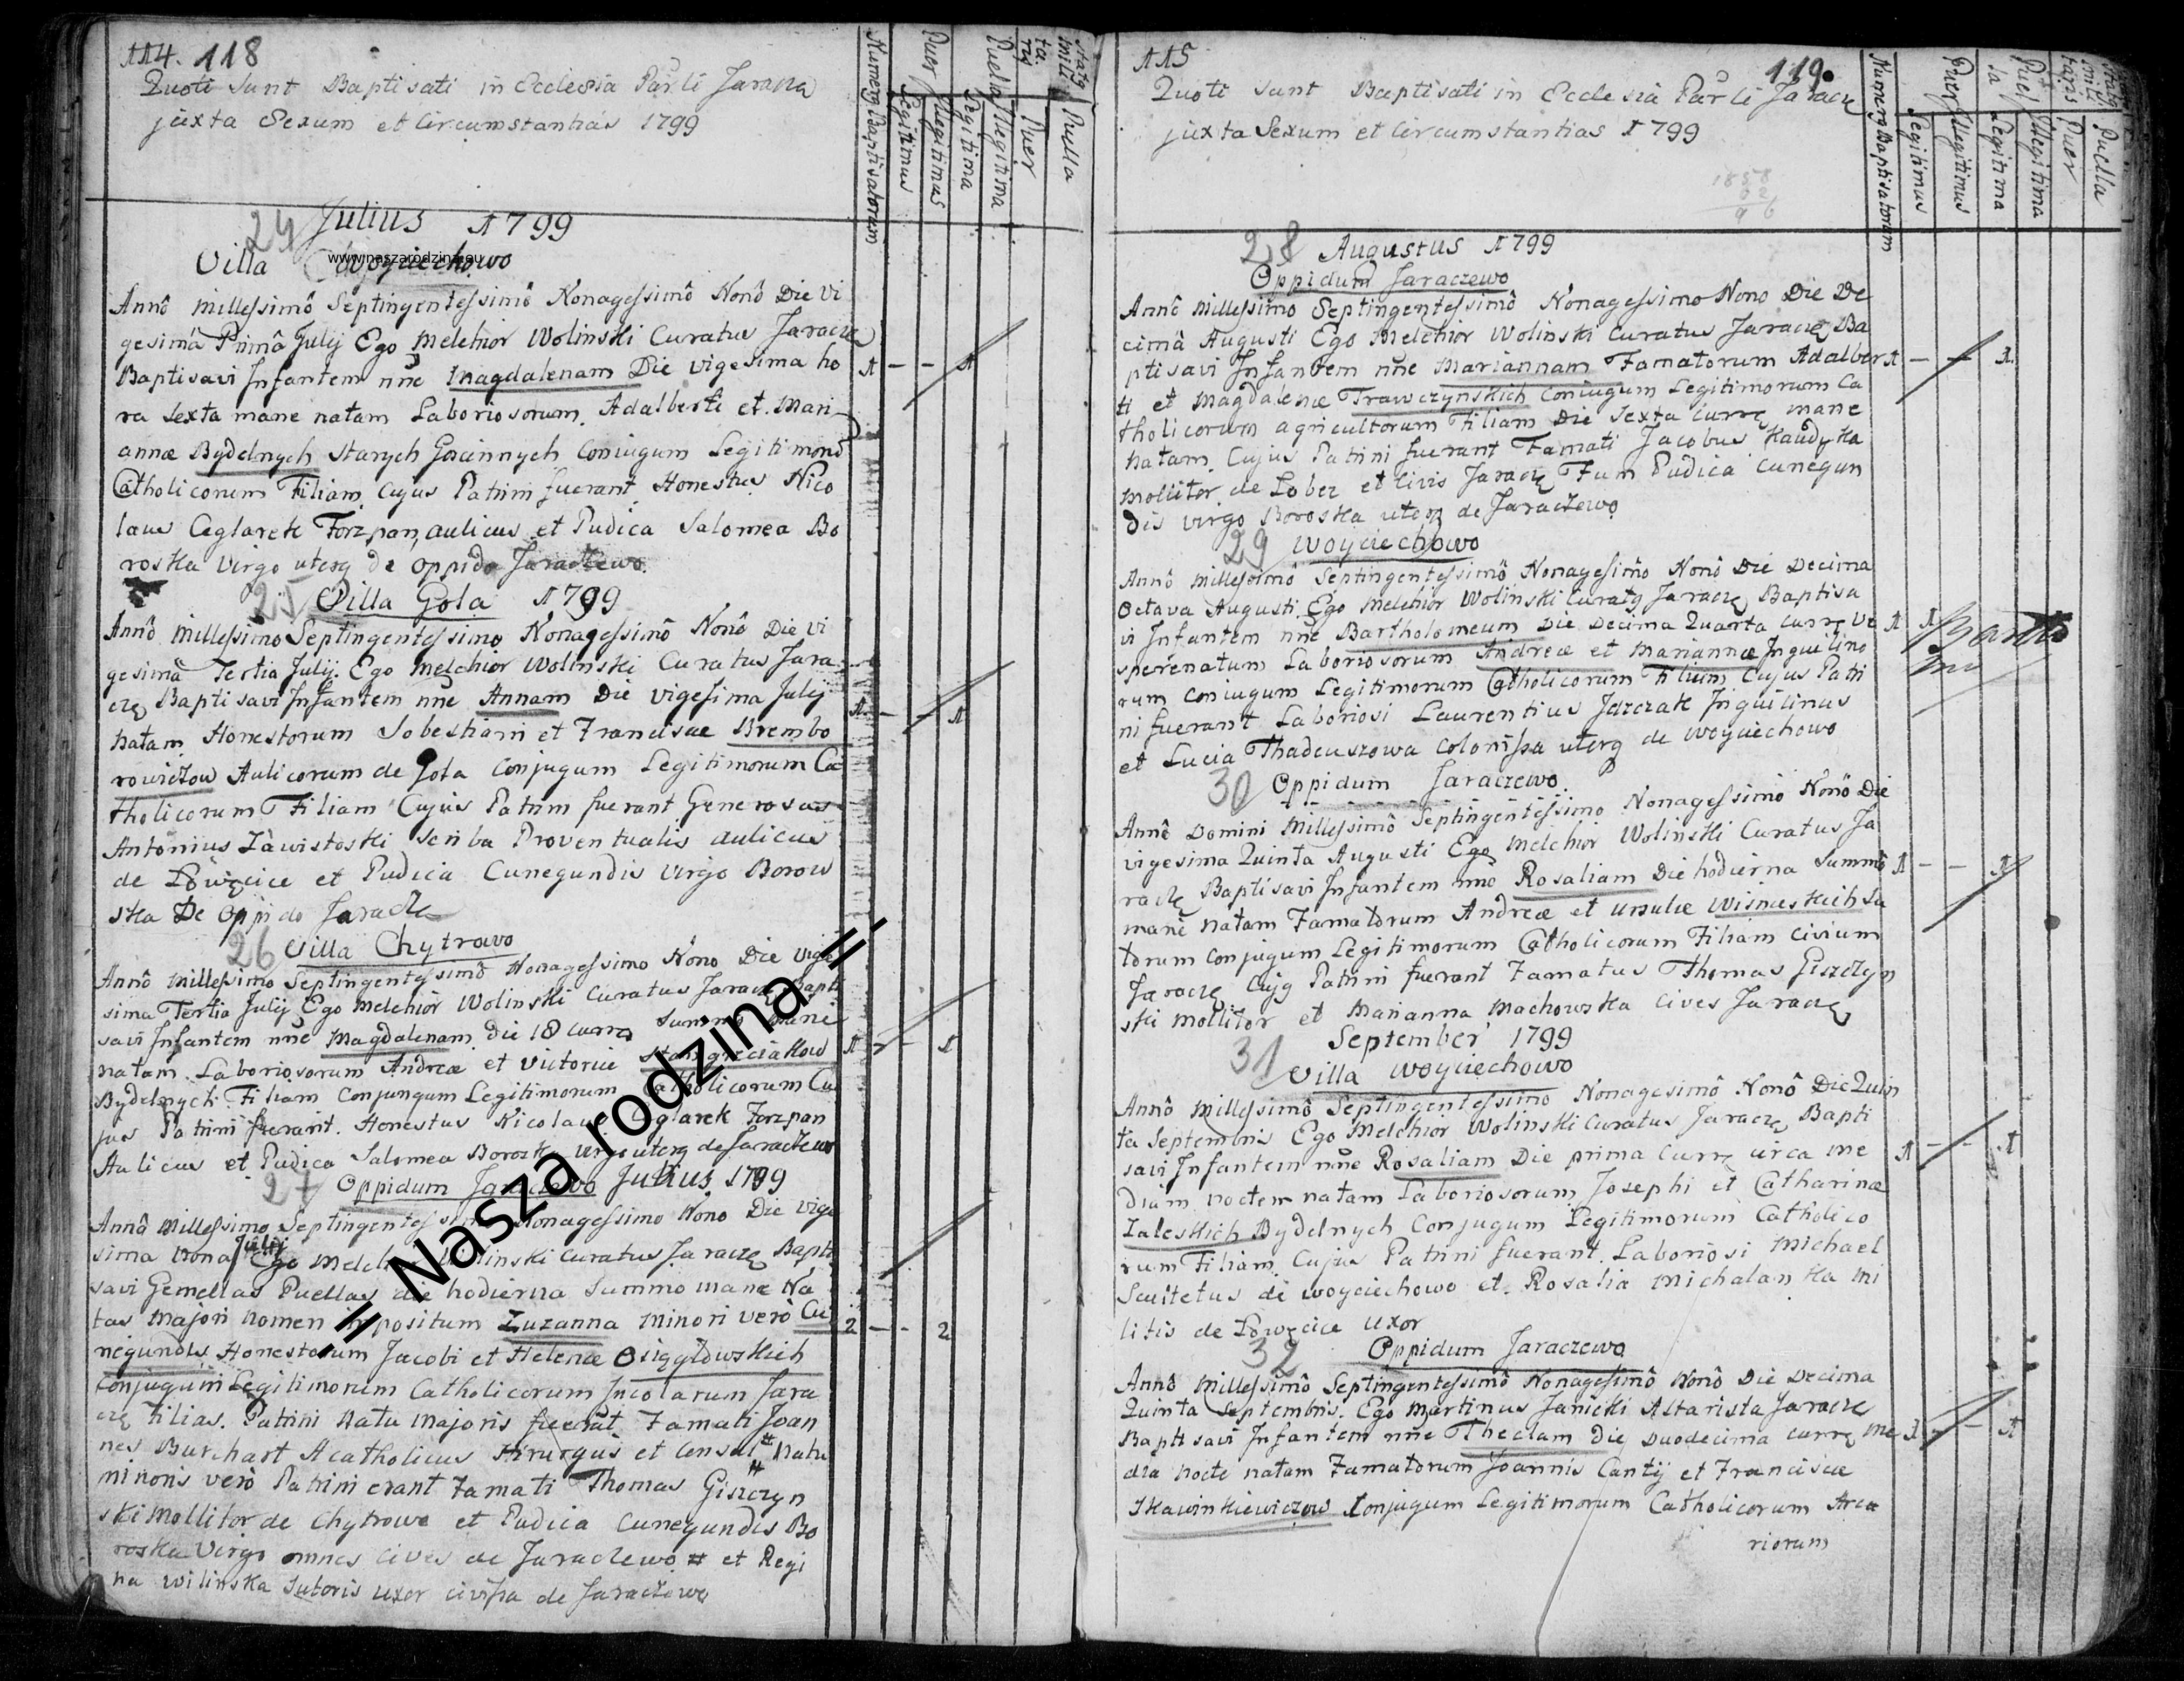 114. 118
Quoti Sunt Baptisati in Ecclesia Par̃li Jaracza
juxta Sexum et Circumstantias 1799
Numerg Baptisatorum
Puer
Legitimus
Illegitimus
Puella
Legitima
Illegitima
Statg mili
ta
ris
Puer
Puella
24 Julius 1799
Villa Woyciechowo
www.naszarodzina.eu
Annô Millessimô Septingentessimô Nonagessimô Nonô Die Vi
gesimâ Primâ Julij Ego Melchior Wolinski Curatus Jaracze
Baptisavi Infantem nñe Magdalenam Die vigesima ho
ra sexta mane natam Laboriosorum Adalberti et Mari
annæ Bydelnych starych Goscinnych Coniugum Legitimorũ
Catholicorum Filiam Cujus Patrini fuerant Honestus Nico
laus Ceglarek Forszpan, aulicus et Pudica Salomea Bo
roska Virgo uterq de oppido Jaraczewo
1 - - 1
25 Villa Gola 1799
Annô Millessimo Septingentessimo Nonagessimô Nonô Die vi
gesimâ Tertia Julij Ego Melchior Wolinski Curatus Jara
czę Baptisavi Infantem nñe Annam Die vigesima Julij
natam Honestorum Sobestiani et Francisce Brembo
rowiczow Aulicorum de Gola Conjugum Legitimorum Ca
tholicorum Filiam Cujus Patrini fuerant Generosus
Antonius Zawistoski Scriba Proventualis aulicus
de Łowęcice et Pudica Cunegundis Virgo Borow
ska De oppido Jaracze
1 - - 1
26 Villa Chytrowo
Annô Millessimo Septingentessimô Nonagessimo Nono Die Vige
sima Tertia Julij Ego Melchior Wolinski Curatus Jaraczę Bapti
savi Infantem nñe Magdalenam Die 18 currę Summo mane
natam Laboriosorum Andreæ et Victoriæ
Bydelnych Filiam Conjungum Legitimorum Catholicorum Cu
jus Patrini fuerant Honestus Nicolaus Ceglarek Forszpan
Aulicus et Pudica Salomea Boroska Virgo uterq de Jaraczewo
1 - - 1
27 Oppidum Jaraczewo Julius 1799
Annô Millessimo Septingentessimo Nonagessimo Nono Die Vige
sima nona Julij Ego Melchior Wolinski Curatus Jaraczę Bapti
savi Gemellas Puellas die hodierna Summo mane Na
tas Majori Nomen impositum Zuzanna Minori verò Cu
negundis Honestorum Jacobi et Helenæ Osięgłowskich
Conjugum Legitimorum Catholicorum Incolarum Jara
czę Filias. Patrini Natu majoris fuerãt Famati Joan
nes Burchart Acatholicus Hirurgus et Consul # natu
minoris verò Patrini erant Famati Thomas Giszczyn
ski Mollitor de Chytrowo et Pudica Cunegundis Bo
roska Virgo omnes Cives de Jaraczewo # et Regi
na Wilinska Sutoris uxor civissa de Jaraczewo
2 - - 2
.= Nasza rodzina =.
115
119.
Quoti Sunt Baptisati in Ecclesia Par̃li Jaracze
juxta Sexum et Circumstantias 1799
Numerg Baptisatorum
Puer
Legitimus
Illegitimus
Puel
la
Legitima
Illegitima
Statg
mili
taris
Puer
Puella
28 Augustus 1799
Oppidum Jaraczewo
Annô Millessimo Septingentessimô Nonagessimo Nono Die De
cimâ Augusti Ego Melchior Wolinski Curatus Jaraczę Ba
ptisavi Infantem nñe Mariannam Famatorum Adalber
ti et Magdalenæ Trawczynskich Coniugum Legitimorum Ca
tholicorum agricultorum Filiam Die Sexta currę mane
natam Cujus Patrini fuerant Famati Jacobus Kaudyka
Mollitor de Lobez et Civis Jaraczę Tum Pudica Cunegun
dis Virgo Boroska uterq de Jaraczewo
1 - - 1
29 Woyciechowo
Annô Millessimô Septingentessimô Nonagesimô Nonô Die Decima
Octava Augusti Ego Melchior Wolinski Curatg Jaraczę Baptisa
vi Infantem nñe Bartholomeum Die Decima Quarta currę Ve
spere natum Laboriosorum Andreæ et Mariannæ Inquilino
rum Coniugum Legitimorum Catholicorum Filium Cujus Patri
ni fuerant Laboriosi Laurentius Jarczak Inquilinus
et Lucia Thadeuszowa Colonissa uterq de Woyciechowo
1 1
30 Oppidum Jaraczewo
Annô Domini Millessimô Septingentessimo Nonagessimo Nonô Die
vigesima Quinta Augusti Ego Melchior Wolinski Curatus Ja
raczę Baptisavi Infantem nñe Rosaliam Die hodierna Summô
mane natam Famatorum Andreæ et Ursulæ Wisnieskich Su
torum Conjugum Legitimorum Catholicorum Filiam Civium
Jaraczę Cujg Patrini fuerant Famatus Thomas Giszczyn
ski Mollitor et Marianna Machowska Cives Jaraczę
1 - - 1
September 1799
31 Villa Woyciechowo
Annô Millessimô Septingentessimo Nonagesimô Nonô Die Quin
ta Septembris Ego Melchior Wolinski Curatus Jaraczę Bapti
savi Infantem nñe Rosaliam Die prima currę circa me
diam noctem natam Laboriosorum Josephi et Catharinæ
Zaleskich Bydelnych Conjugum Legitimorum Catholico
rum Filiam Cujus Patrini fuerant Laboriosi Michael
Scultetus de Woyciechowo et Rosalia Michalanka Mi
litis de Łowęcice Uxor
1 - - 1
32 Oppidum Jaraczewo
Annô Millessimô Septingentessimô Nonagessimô Nonô Die Decima
Quinta Septembris Ego Martinus Janicki Altarista Jaracze
Baptisavi Infantem nñe Theclam Die Duodecima currę Me
dia nocte natam Famatorum Joannis Cantij et Franciscæ
Skawinkiewiczow Conjugum Legitimorum Catholicorum Arca
riorum
1 - - 1